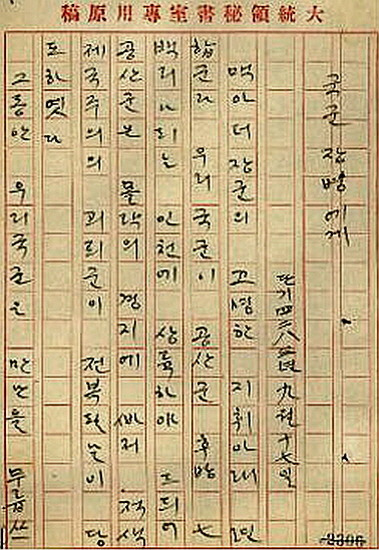 大統領秘書室專用原稿
국군 장병에게
단기四二八三년 九월 十七일
맥아더장군의 고명한 지휘아래 련
합군과 우리 국군이 공산군 후방 七
백리나되는 인천에 상륙하야 드듸어
공산군은 몰락의 경지에 빠저 적색
제국주의의 괴뢰군이 전복될날이 당
도하엿다
그동안 우리국군은 만난을 무릅쓰
2306